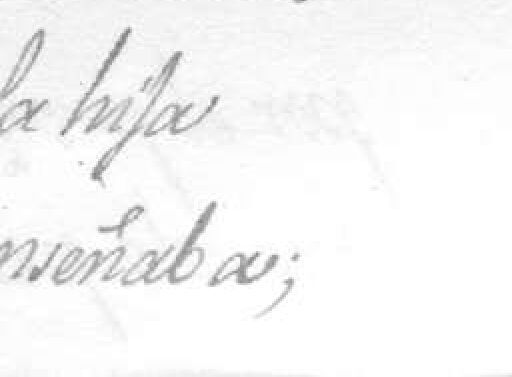 la hija
enseñaba;